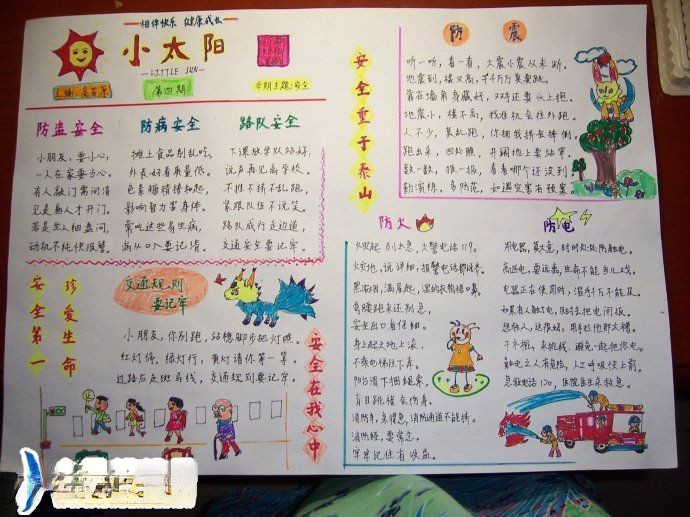 相伴快乐 健康成长
小太阳
LITTLE SUN
主编:
第四期
本期主题:安全
防盗安全
小朋友,要小心,
一人在家要当心。
有人敲门需问清
见是熟人才开门。
若是生人细盘问,
动机不纯快报警。
防病安全
摊上食品别乱吃,
外表好看质量低。
色素糖精掺和起,
影响智力害身体。
常吃这些易生病,
病从口入要记清。
路队安全
下课放学队站好,
说声再见离学校。
不推不挤不乱跑,
紧跟队伍不说笑。
路队成行走边道,
交通安全要记牢。
安全第一
珍爱生命
交通规则
要记牢
小朋友,你别跑,站稳脚步把灯照。
红灯停,绿灯行,黄灯请你等一等。
过路应走斑马线,交通规则要记牢。
安全在我心中
安全重于泰山
防震
听一听,看一看,大震小震从未断,
地震到,楼又高,千万莫要跳。
靠在墙角身藏好,双手还要头上抱。
地震小,楼不高,找准机会往外跑。
人不少,莫乱跑,你拥我挤会摔倒。
跑出来,四处瞧,开阔地上要站牢。
数一数,报一报,看看哪个还没到
勤演练,多防范,如遇灾害有预案。
防火
火突起,别太急,火警电话119。
火灾地,说详细,报警电话都该知。
黑浓烟,满屋起,湿的衣物捂口鼻。
弯腰跑来还别急,
安全出口看仔细。
身上起火地上滚,
不乘电梯往下奔。
阳台滑下捆绳索,
盲目跳楼会伤身。
消防车,来得急,消防通道不能挤。
消防经,要常念,
牢牢记住有收益。
防电
用电器,莫大意,时时处处防触电。
高压电,要远离,生命不能当儿戏。
电器正在使用时,湿手千万不能及。
如果有人触了电,及时去把电闸扳。
干木棍,来挑线,避免一起把你电。
触电之人有危险,人工呼吸使上前。
急救电话120,医院医生来救急。